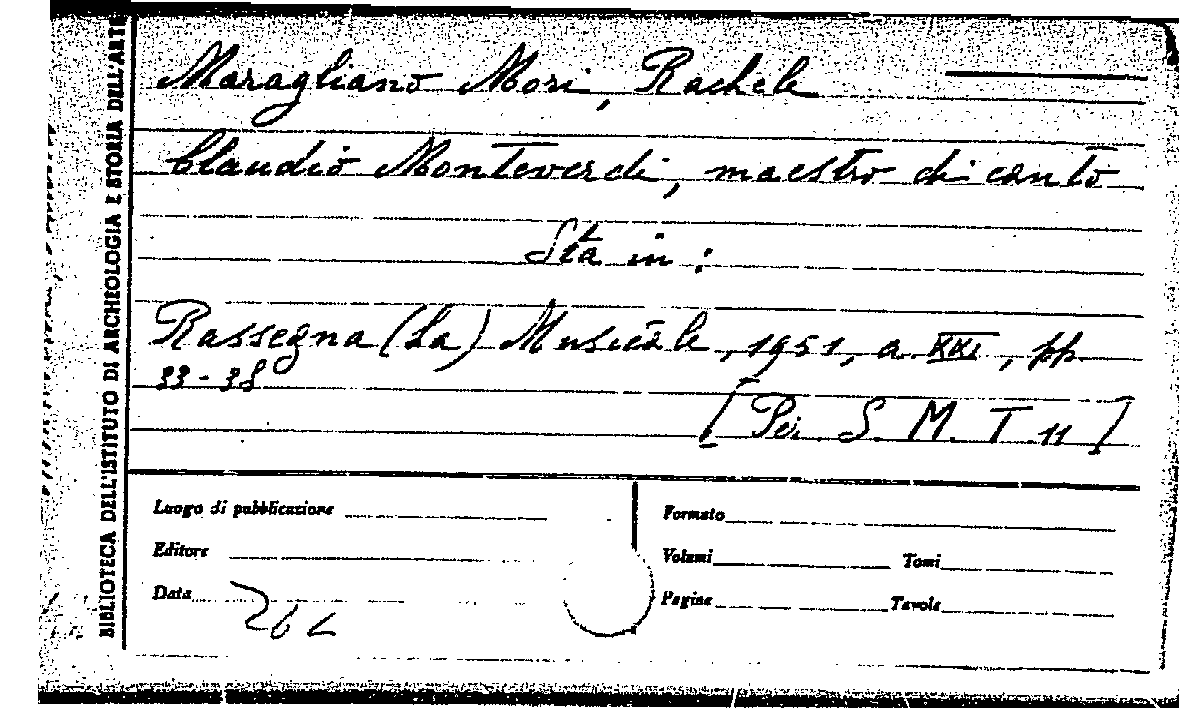 BIBLIOTECA DELL'ISTITUTO DI ARCHEOLOGIA E STORIA DELL'ARTE
Maragliano Mori, Rachele
Claudio Monteverdi, maestro di canto
Sta in:
Rassegna (La) Musicale, 1951, a. XXI, pp.
33-38
[Per. S. M. T 11]
Luogo di pubblicazione
Formato
Editore
Volumi Tomi
Data
Pagine Tavole